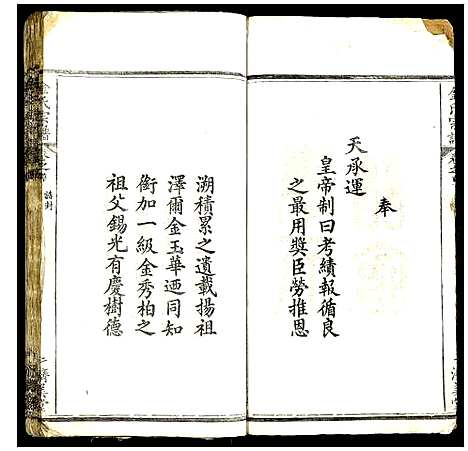 奉
天承運
皇帝制曰考績報循良
之最用獎臣勞推恩
溯積累之遺載揚祖
澤爾金玉華迺同知
銜加一級金秀柏之
祖父錫光有慶樹德
金氏宗譜
誥封